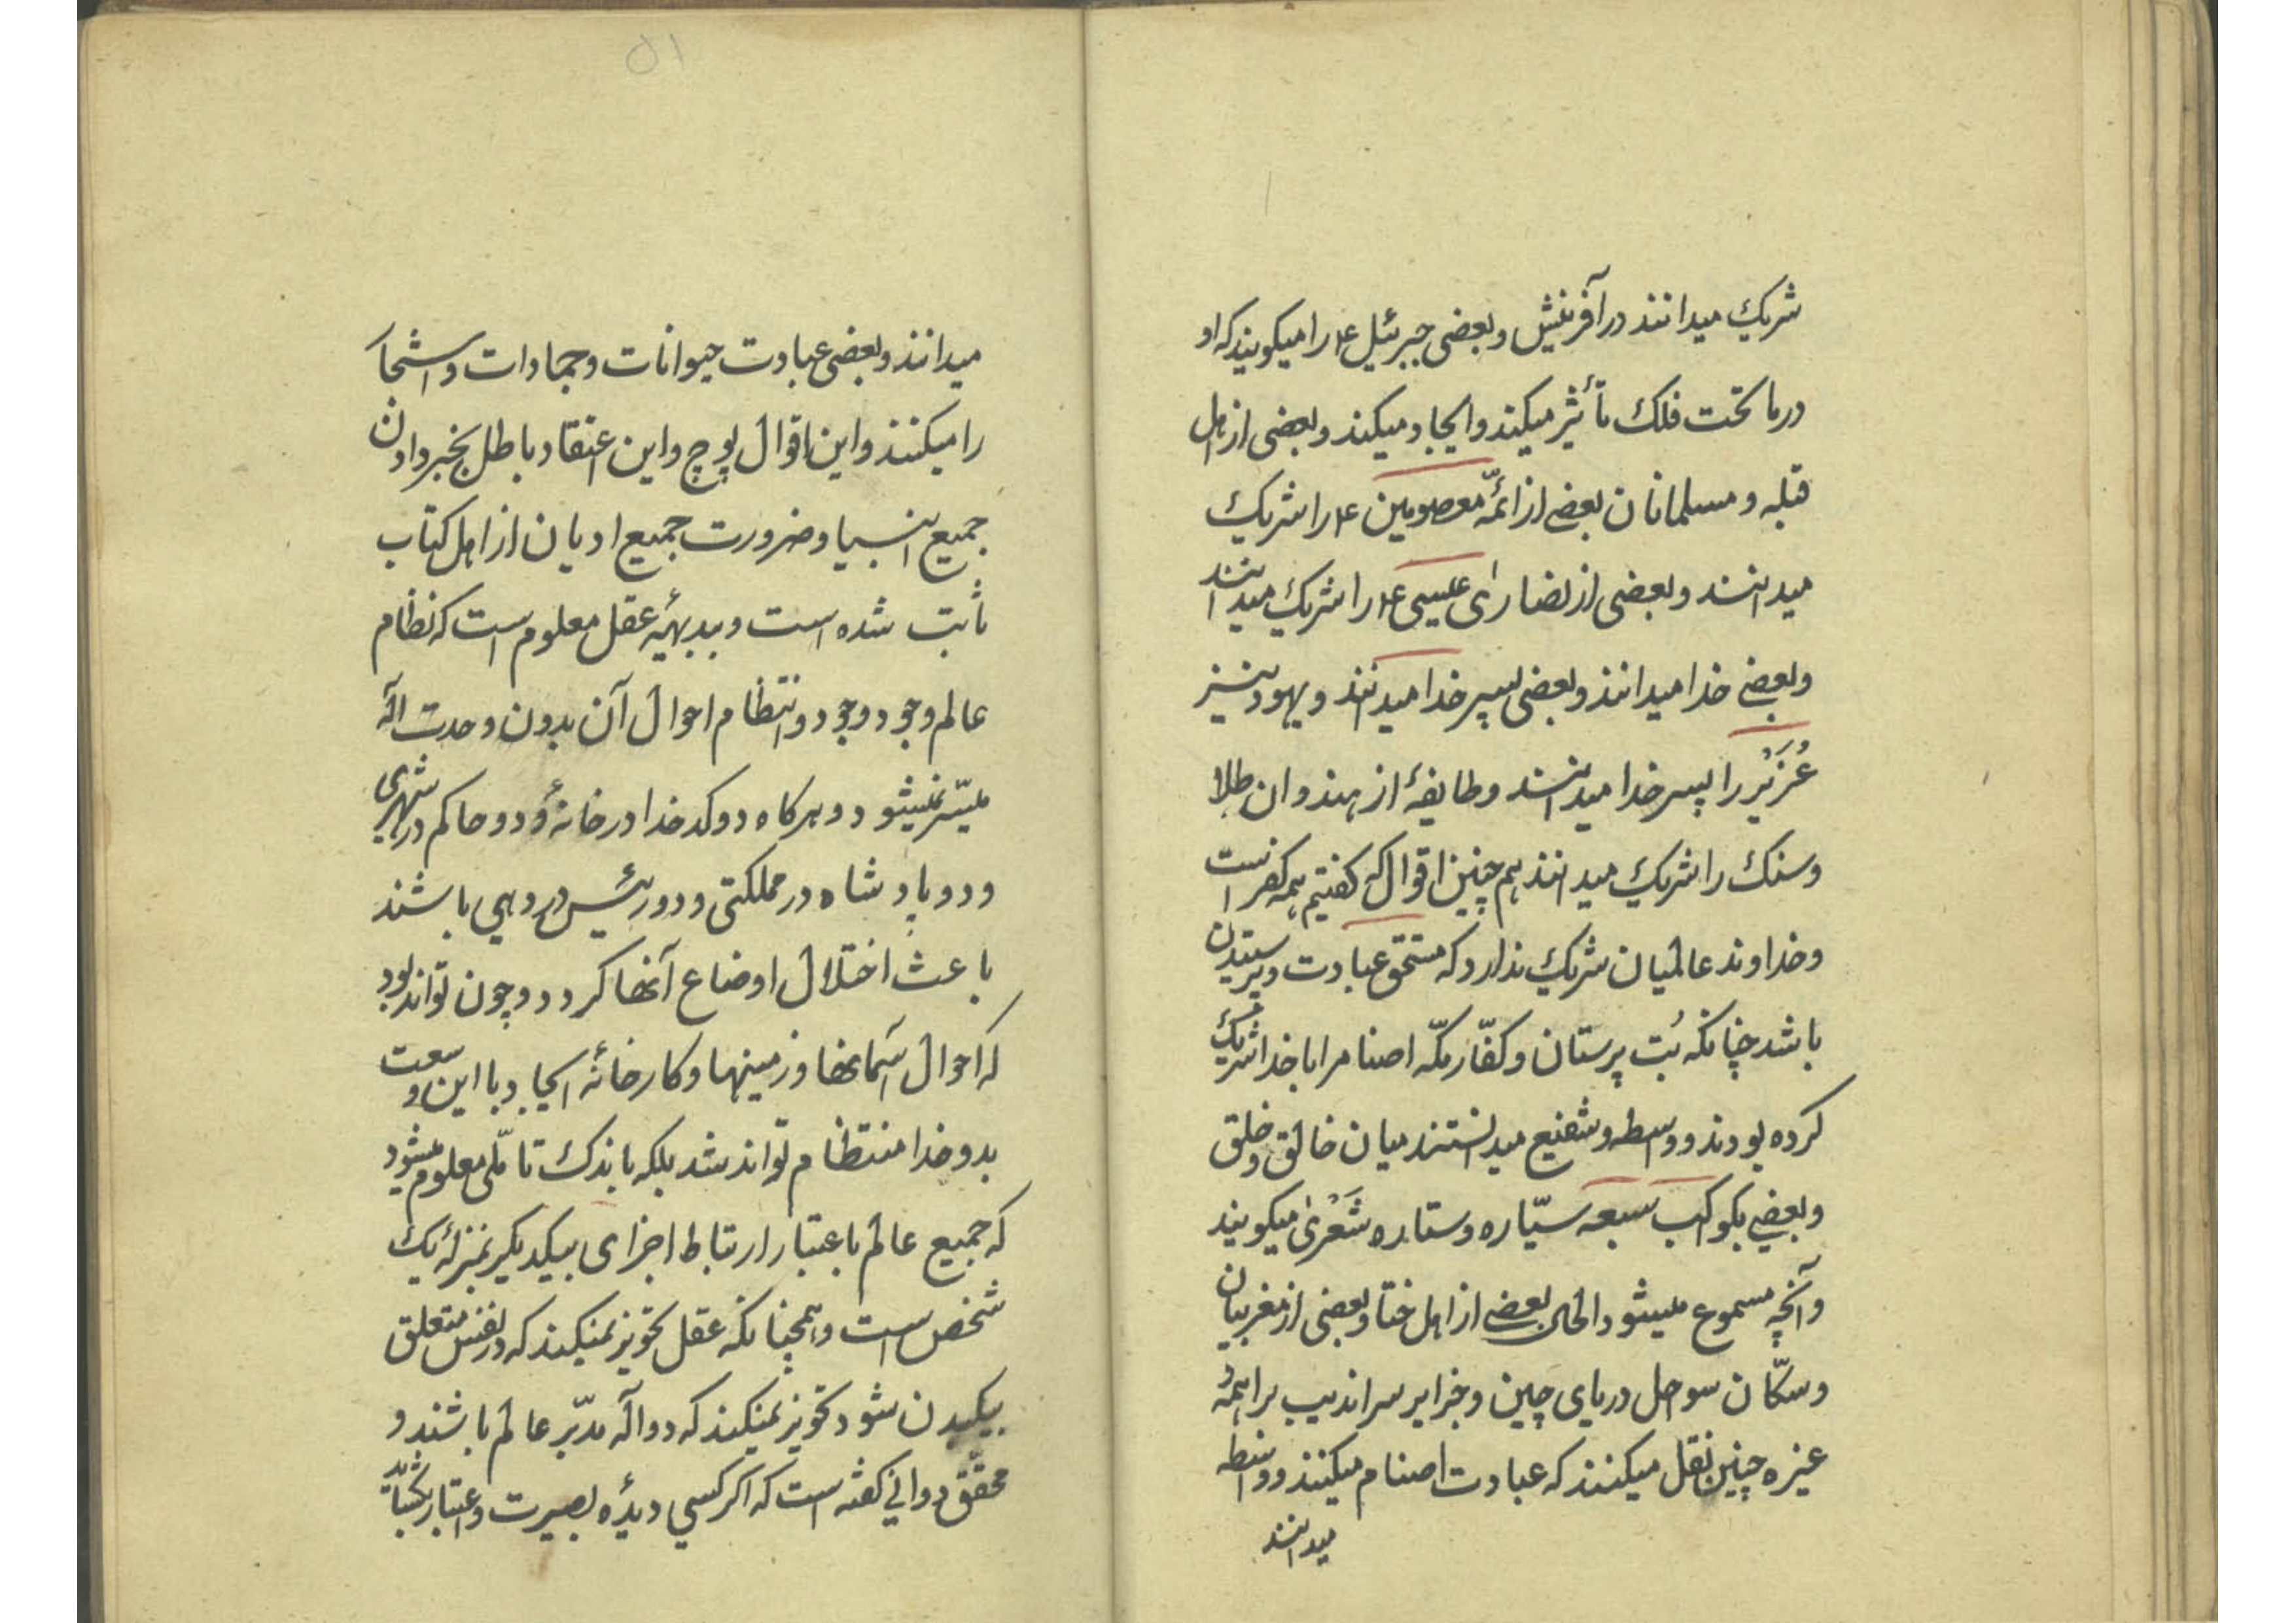 شریك میدانند در آفرینش و بعضی جبرئیل ع را میکویند که او
در ما تحت فلك تأثیر میکند و ایجاد میکند و بعضی از اهل
قبله و مسلمانان بعضی از ائمّه معصومین ع را شریك
میدانند و بعضی از نصاریٰ عیسی ع را شریك میدانند
و بعضی خدا میدانند و بعضی پسر خدا میدانند و یهود نیز
عُزَیْر را پسر خدا میدانند و طایفهٔ از هندوان طلا
و سنك را شریك میدانند هم چنین اقوال که کفتیم همه کفر است
و خداوند عالمیان شریك ندارد که مستحق عبادت و پرستیدن
باشد چنانکه بُت پرستان و کفّار مکّه اصنام را با خدا شریك
کرده بودند و واسطه و شفیع میدانستند میان خالق و خلق
و بعضی بکواکب سبعه سیّاره و ستاره شَعْریٰ میکویند
و آنچه مسموع میشود الحال بعضی از اهل ختا و بعضی از مغربیان
و سکّان سواحل دریای چین و جزایر سراندیب براهمهٔ
غیره چنین نقل میکنند که عبادت اصنام میکنند و واسطه
میدانند
۵۱
میدانند و بعضی عبادت حیوانات و جمادات و اشجا
را میکنند و این اقوال پوچ و این اعتقاد باطل بخبر دادن
جمیع انبیا و ضرورت جمیع ادیان از اهل کتاب
ثابت شده است و ببدیههٔ عقل معلوم است که نظام
عالم وجود وجود و انتظام احوال آن بدون وحدت اله
میسّر نمیشود و هرکاه دو کدخدا در خانهٔ و دو حاکم در شهری
و دو پادشاه در مملکتی و دو رئیس در دهی باشند
باعث اختلال اوضاع آنها کردد و چون تواند بود
که احوال آسمانها و زمینها و کارخانهٔ ایجاد با این وسعت
بدو خدا منتظم تواند شد بلکه باندك تأمّلی معلوم میشود
که جمیع عالم باعتبار ارتباط اجزای بیکدیکر بمنزلهٔ یك
شخص است و همچنانکه عقل تجویز نمیکند که دو نفس متعلق
بیکبدن شود تجویز نمیکند که دو اله مدبّر عالم باشند و
محقّق دوانی کفته است که اکر کسی دیدهٔ بصیرت و اعتبار بکشاید